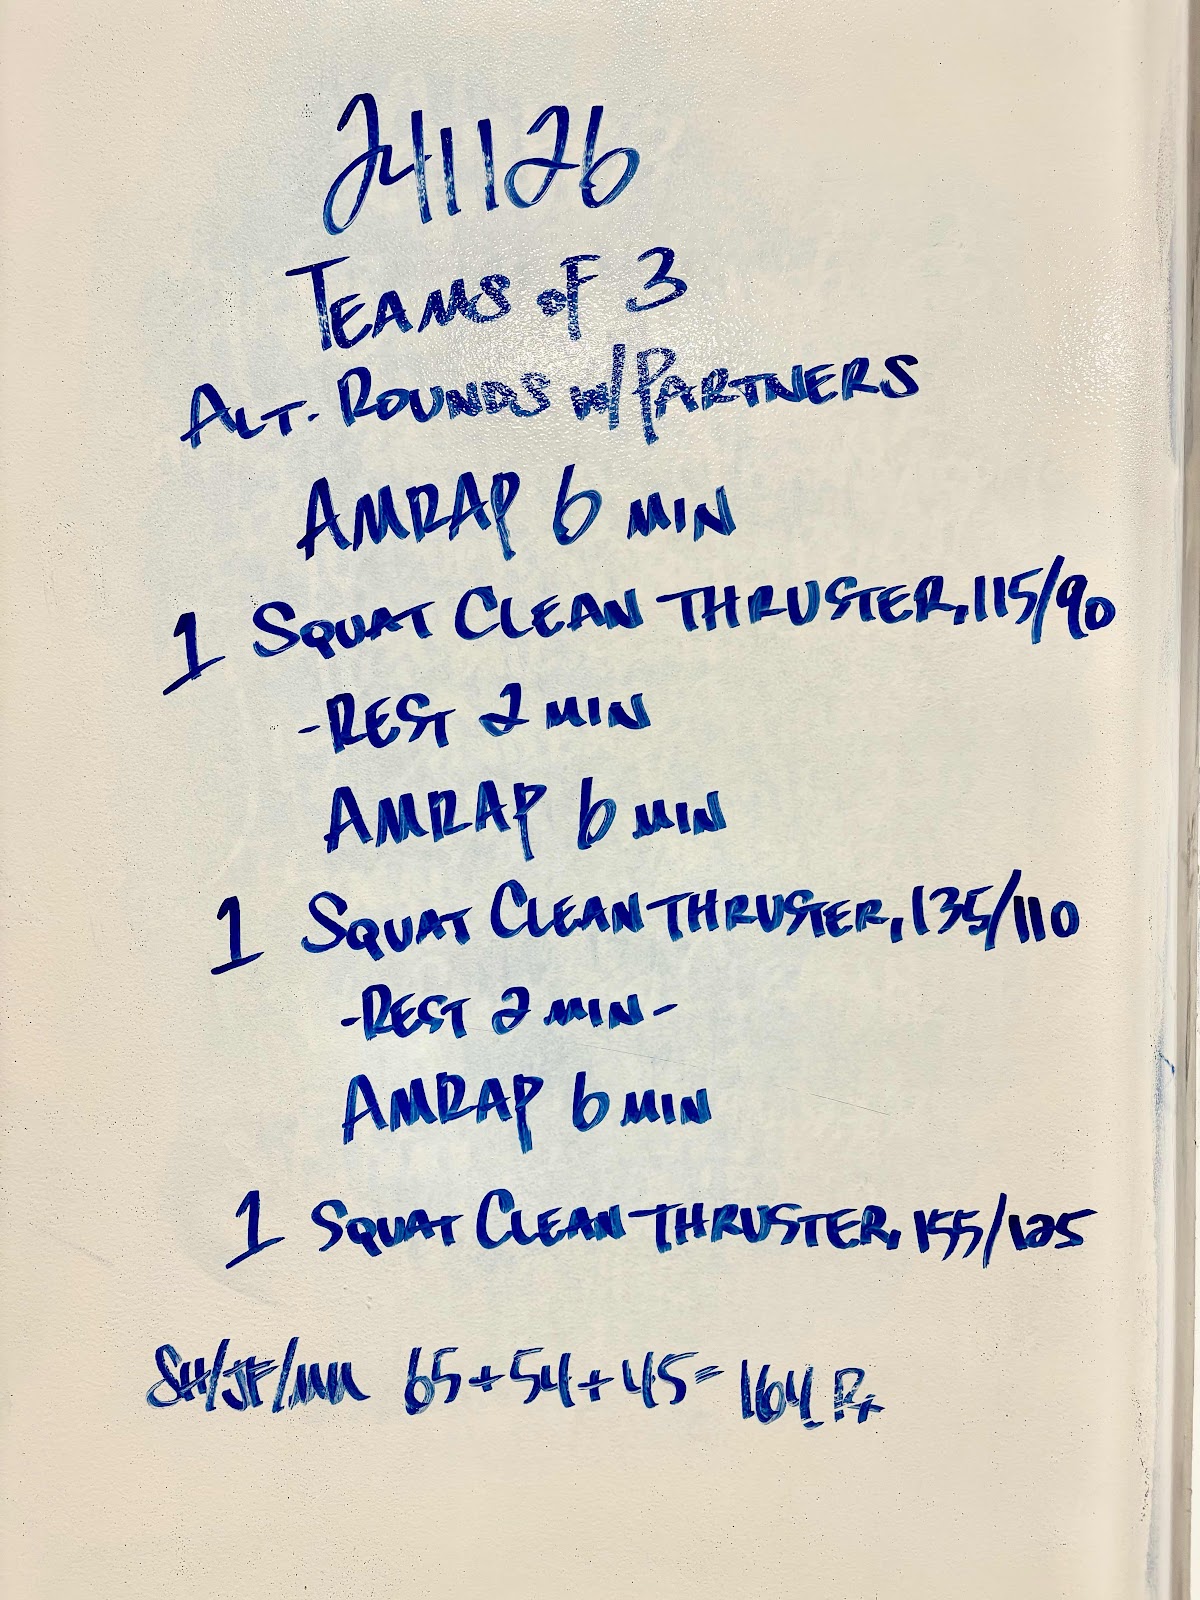 241126
TEAMS OF 3
ALT. ROUNDS W/PARTNERS
AMRAP 6 MIN
1 SQUAT CLEAN THRUSTER, 115/90
-REST 2 MIN
AMRAP 6 MIN
1 SQUAT CLEAN THRUSTER, 135/110
-REST 2 MIN-
AMRAP 6 MIN
1 SQUAT CLEAN THRUSTER, 155/125
SH/JF/MM 65+54+45=164 Rx